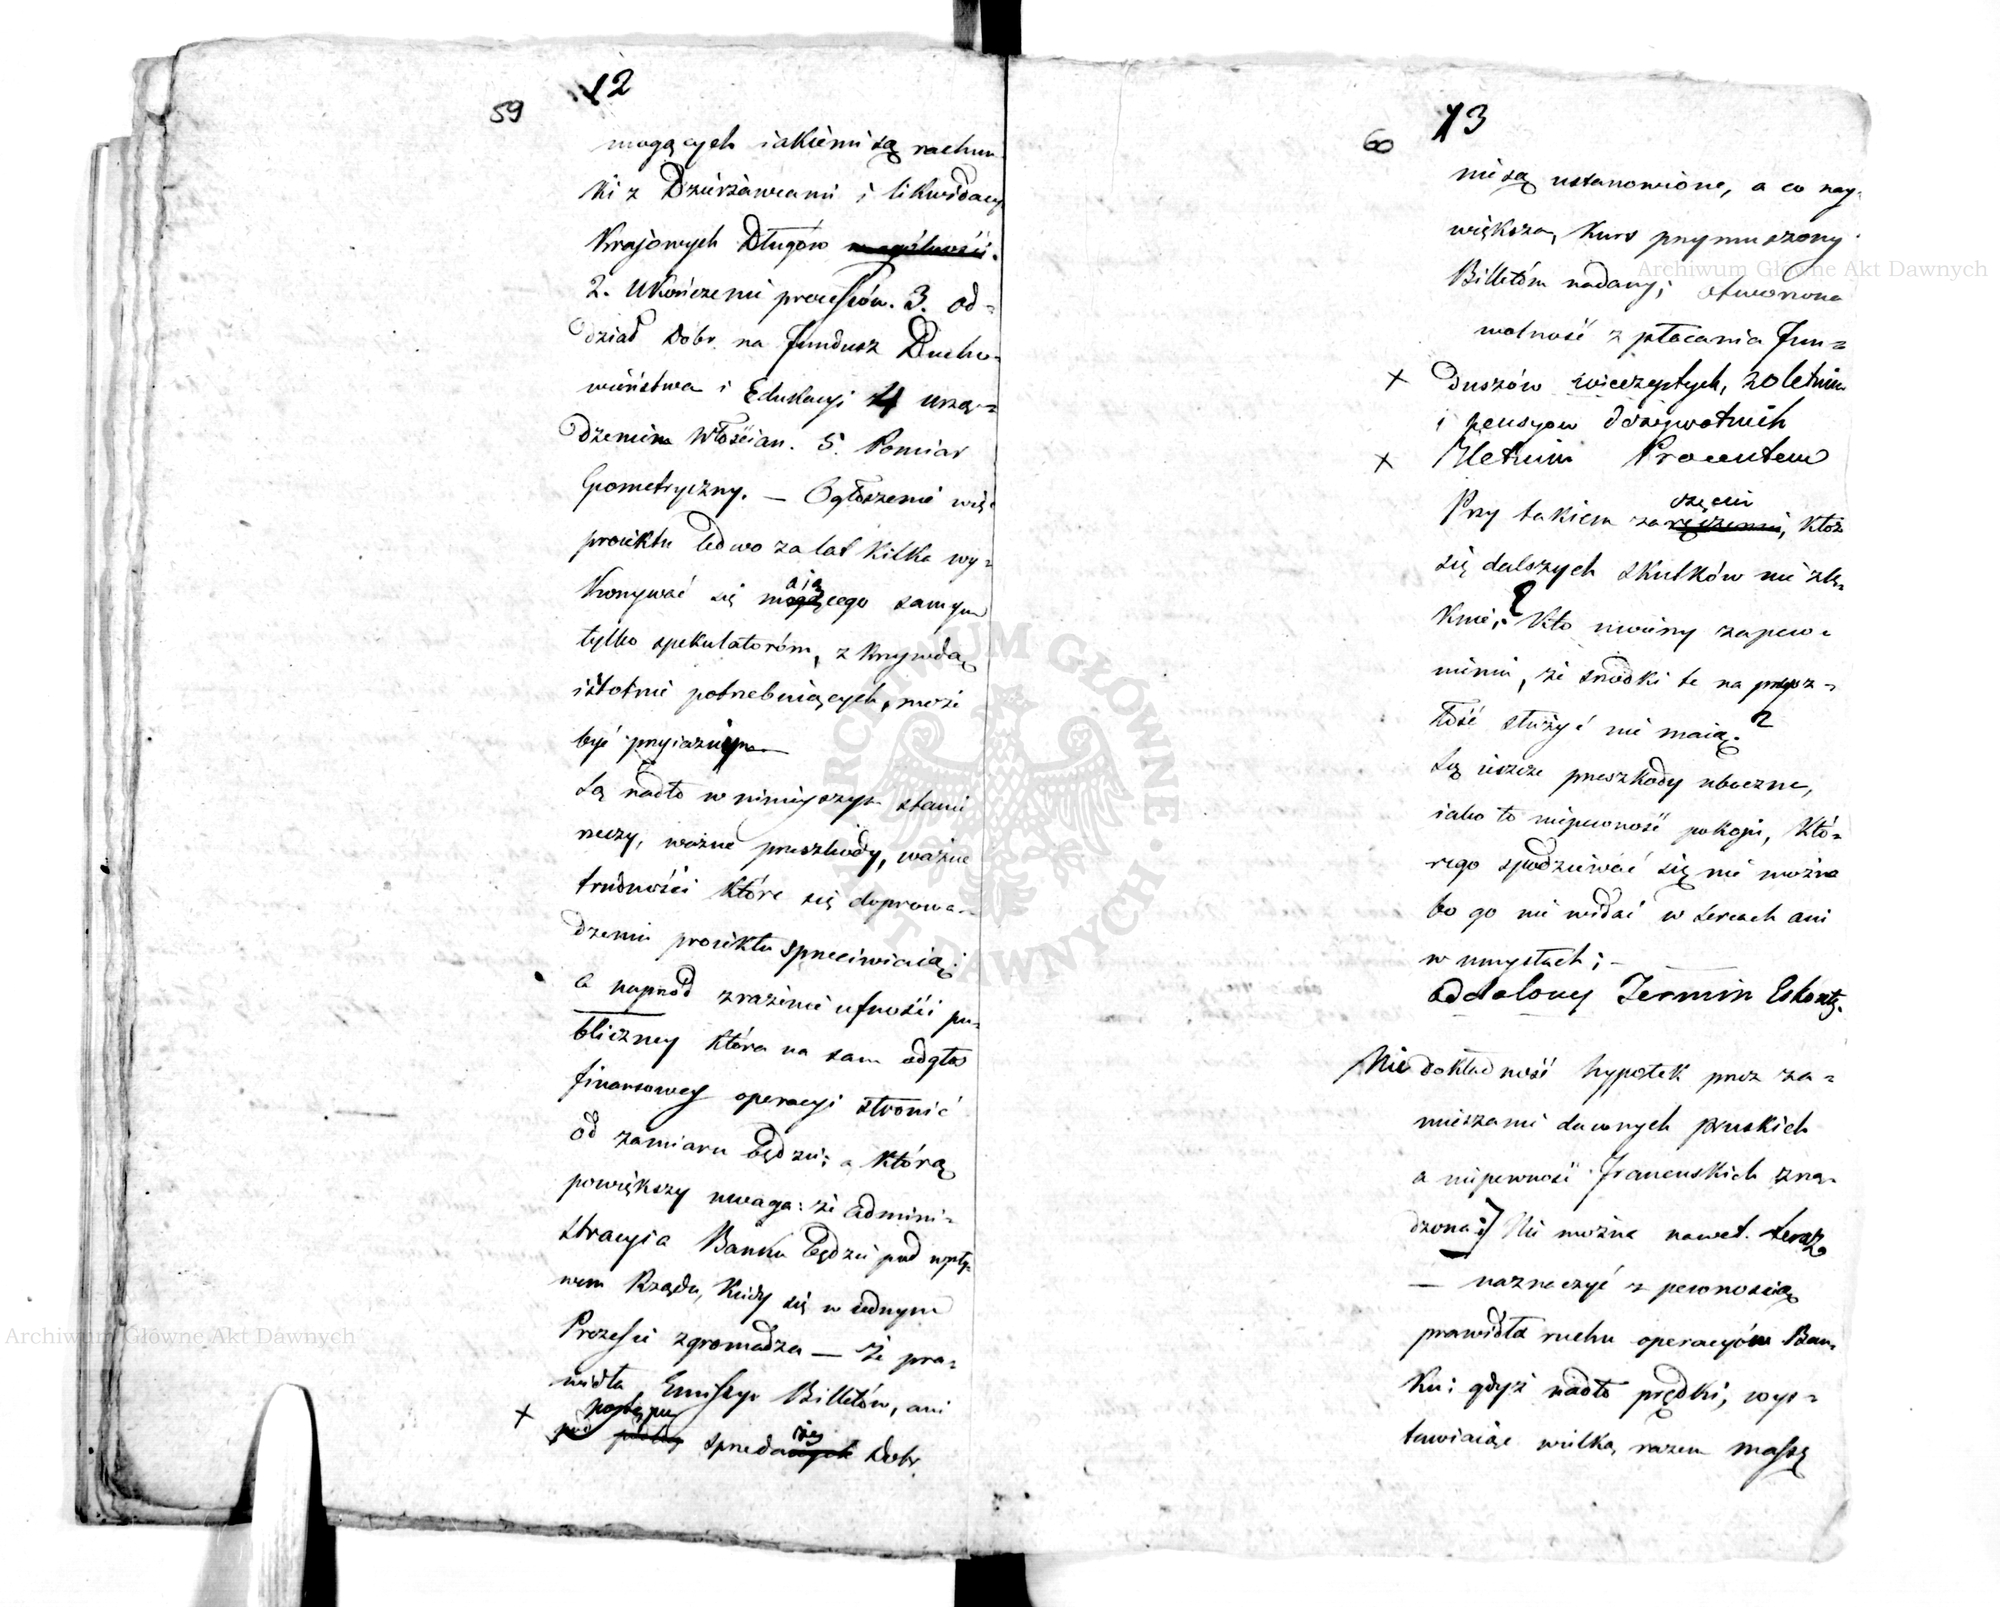 12
59
mogących iakiemi są rachun
ki z Dzierżawcami i likwidacy
Krajowych Długów
2. Ukończenie processów. 3. od=
dział Dóbr na fundusz Ducho=
wieństwa i Edukacyi 4 urzą=
dzenie Włościan. 5. Pomiar
Gieometryczny. — Ogłoszenie więc
proiektu ledwo za lat kilka wy=
konywać się maiącego samym
tylko spekulatoróm, z krzywdą
istotnie potrzebuiących, może
być przyiazny
Są nadto w ninieyszym stanie
rzeczy, ważne przeszkody, ważne
trudności które się doprowa=
dzeniu proiektu sprzeciwiaią;
a naprzód zrażenie ufności pu=
bliczney która na sam odgłos
finansowey operacyi stronić
od zamiaru będzie; a którą
powiększy uwaga: że admini=
stracyia Banku będzie pod wpły
wem Rządu, kiedy się w iednym
Prezesie zgromadza — Że pra=
widła Emissyi Billetów, ani
+ postępu
sprzedaży Dobr
13
60
nie są ustanowione, a co nay=
większa, kurs przymuszony
Billetóm nadany; otworzona
wolność spłacania fun=
+ duszów wieczystych, 20 letnim
i pensyow dożywotnich
+ letnim Procentem
Przy takiem zarzęcie, któż
się dalszych skutków nie zlę=
knie;? Kto mniey zapew=
nienia, że środki te na przysz=
łość służyć nie maią?
Są ieszcze przeszkody uboczne,
iako to niepewność pokoju, któ=
rego spodziewać się nie można
bo go nie widać w sercach ani
w umysłach; —
oddalony Termin Eskonty.
Niedokładność hypotek przez za=
mieszanie dawnych pruskich
a niepewność Francuskich zrzą=
dzona;) Nie można nawet teraz
— naznaczyć z pewnością
prawidła ruchu operacyów Ban=
ku; gdyż nadto prędki, wys=
tawiaiąc wielką razem massę
Archiwum Główne Akt Dawnych
Archiwum Główne Akt Dawnych
ARCHIWUM GŁÓWNE AKT DAWNYCH